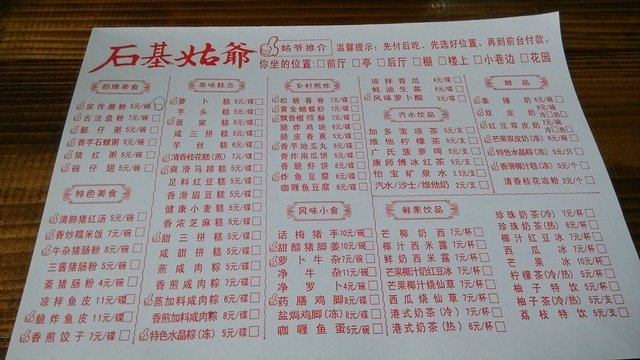 石基姑爺
姑爷推介
温馨提示：先付后吃、先选好位置、再到前台付款。
你坐的位置：□前厅 □亭 □后厅 □棚 □楼上 □小巷边 □花园
招牌美食
家传濑粉 5元/碗
古法盘粉 7元/碟
艇仔粥 5元/碗
香芋石螺粥 5元/碗
猪红粥 5元/碗
碗仔翅 5元/碗
特色美食
清肺猪红汤 5元/碗
香炒糯米饭 7元/碗
牛杂猪肠粉 8元/碗
三酱猪肠粉 5元/碗
斋猪肠粉 4元/碗
凉拌鱼皮 11元/碟
脆炸鱼皮 11元/碟
香煎饺子 7元/碟
美味糕点
萝卜糕 5元/碟
芋头糕 5元/碟
莲家糕 5元/碟
咸三拼糕 5元/碟
芋丝糕 6元/碟
清香桂花糕(蒸) 7元/碟
爽滑马蹄糕 5元/碟
足料红豆糕 5元/碟
香滑眉豆糕 5元/碟
健康小麦糕 5元/碟
香浓芝麻糕 5元/碟
甜三拼糕 5元/碟
咸甜拼糕 5元/碟
蒸咸肉粽 5元/碟
香煎咸肉粽 7元/碟
蒸加料咸肉粽 6元/碟
香煎加料咸肉粽 8元/碟
特色水晶粽(冻) 5元/碟
乡村煎炸
松脆春卷 7元/碟
黄金蝴蝶虾 7元/碟
飘香榴梿酥 7元/碟
脆炸鸡块 7元/碟
脆皮香蕉 5元/碟
香芋地瓜丸 6元/碟
香炸南瓜饼 5元/碟
香脆虾饼 6元/碟
炸鱼豆腐 6元/碟
咖喱鱼豆腐 6元/碟
风味小食
话梅猪手 10元/碗
甜醋猪脚姜 10元/碗
萝卜牛杂 7元/碗
净牛杂 11元/碗
净萝卜 4元/碗
药膳鸡脚 8元/碟
盐焗鸡脚(冻) 8元/碟
咖喱鱼蛋 5元/碗
凉拌青瓜 4元/碟
蚝油生菜 6元/碟
风味萝卜酸 3元/碟
汽水饮品
加多宝凉茶 5元/支
维他柠檬茶 5元/支
广氏菠萝啤 5元/支
康师傅冰红茶 5元/支
怡宝矿泉水 2.5元/支
汽水/沙士/维他奶 2元/支
鲜果饮品
芒椰奶西 7元/杯
椰汁西米露 7元/杯
鲜奶西米露 7元/杯
芒果椰汁奶红豆冰 7元/杯
芒果椰汁烧仙草 7元/杯
西瓜烧仙草 7元/杯
港式奶茶(冷) 7元/杯
港式奶茶(热) 6元/杯
甜品
姜撞奶 6元/碗
双皮奶 5元/碗
红豆双皮奶 7元/碗
芒果双皮奶(冻) 8元/碗
特色水晶粽(冻) 5元/只
香滑椰汁糕(冻) 5元/个
清香桂花凉粉 2元/个
珍珠奶茶(冷) 7元/杯
珍珠奶茶(热) 6元/杯
椰汁红豆冰 7元/杯
西瓜冰 7元/杯
芒果冰 10元/杯
柠檬茶(冷/热) 5元/杯
柚子特饮 5元/杯
柚子茶(冷/热) 5元/杯
荔枝特饮 5元/杯